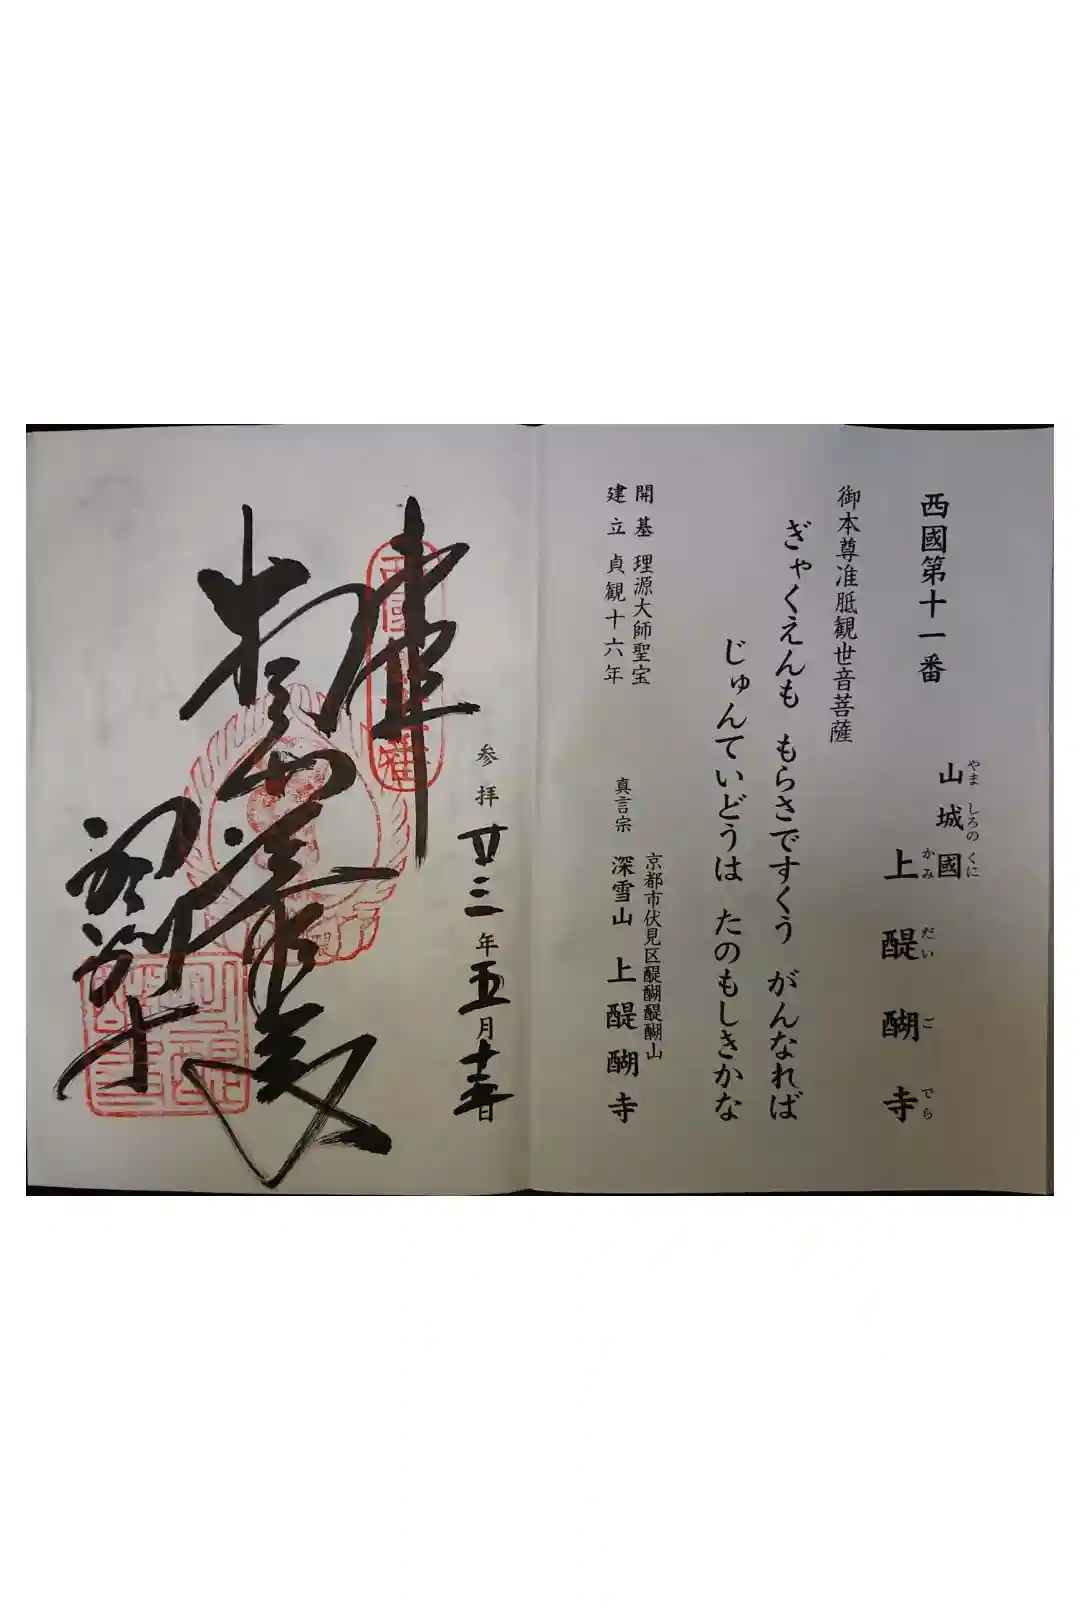 西國第十一番
山城國
やましろのくに
上醍醐寺
かみだいごでら
御本尊准胝観世音菩薩
ぎゃくえんも もらさですくう がんなれば
じゅんていどうは たのもしきかな
開基 理源大師聖宝
建立 貞観十六年
京都市伏見区醍醐醍醐山
真言宗 深雪山 上醍醐寺
参拝廿三年五月十三日
奉拝
醍醐寺